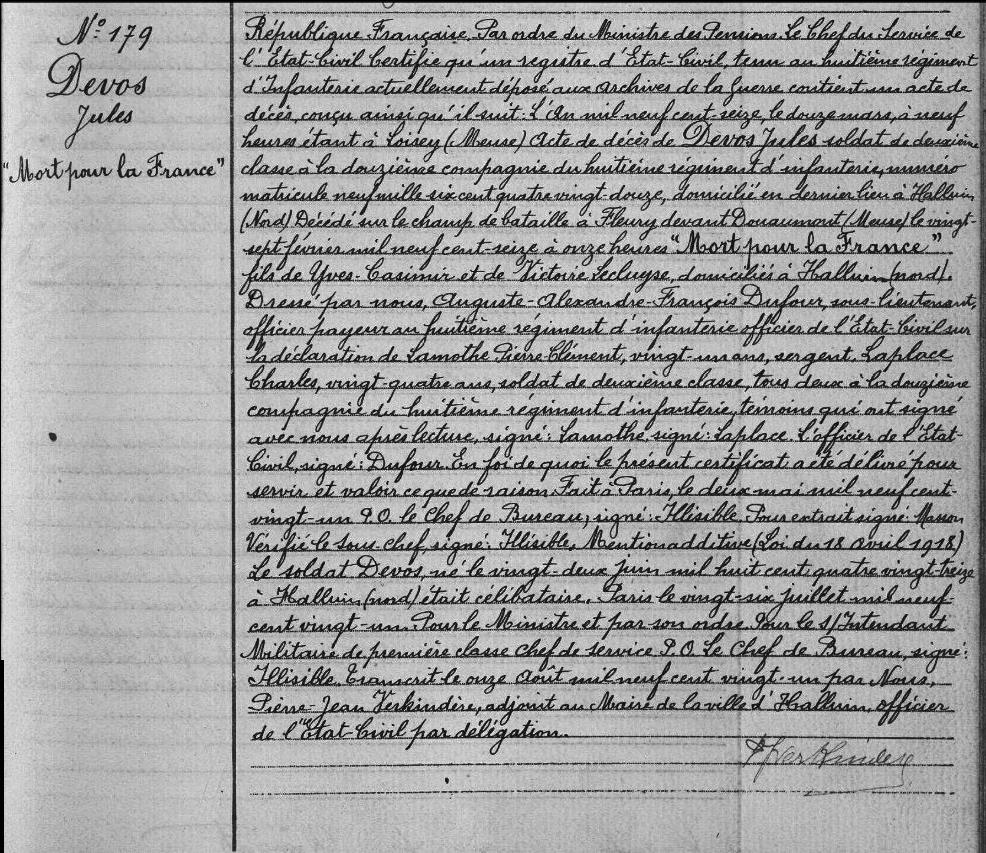 Nº 179
Devos
Jules
"Mort pour la France"
République Française. Par ordre du Ministre des Pensions. Le Chef du Service de
l'Etat-Civil Certifie qu'un registre d'Etat-Civil, tenu au huitième régiment
d'Infanterie actuellement déposé aux archives de la Guerre contient un acte de
décès, conçu ainsi qu'il suit: L'An mil neuf cent-seize, le douze mars, à neuf
heures étant à Loisey (Meuse) Acte de décès de Devos Jules soldat de deuxième
classe à la douzième compagnie du huitième régiment d'infanterie, numéro
matricule neuf mille six cent quatre vingt-douze, domicilié en dernier lieu à Halluin
(Nord) Décédé sur le champ de bataille à Fleury devant Douaumont (Meuse) le vingt-
sept février mil neuf cent-seize à onze heures "Mort pour la France"
fils de Yves-Casimir et de Victoire Lecluyse, domiciliés à Halluin (nord).
Dressé par nous, Auguste-Alexandre-François Dufour, sous-lieutenant,
officier payeur au huitième régiment d'infanterie officier de l'Etat-Civil sur
la déclaration de Lamothe Pierre Clément, vingt-un ans, sergent, Laplace
Charles, vingt-quatre ans, soldat de deuxième classe, tous deux à la douzième
compagnie du huitième régiment d'infanterie, témoins qui ont signé
avec nous après lecture, signé: Lamothe, signé: Laplace. L'officier de l'Etat-
Civil, signé: Dufour. En foi de quoi le présent certificat a été délivré pour
servir et valoir ce que de raison. Fait à Paris, le deux mai mil neuf cent-
vingt-un P.O. le Chef de Bureau, signé: Illisible. Pour extrait signé: Masson
Vérifié le Sous-chef, signé: Illisible. Mention additive (Loi du 18 avril 1918)
Le soldat Devos, né le vingt-deux juin mil huit cent quatre vingt-treize
à Halluin (nord) était célibataire. Paris le vingt-six juillet mil neuf-
cent vingt-un. Pour le Ministre et par son ordre Pour le S/Intendant
Militaire de première classe Chef de service P.O. Le Chef de Bureau, signé:
Illisible. Transcrit le onze Août mil neuf cent vingt-un par Nous,
Pierre-Jean Verkindère, adjoint au Maire de la ville d'Halluin, officier
de l'Etat-Civil par délégation.